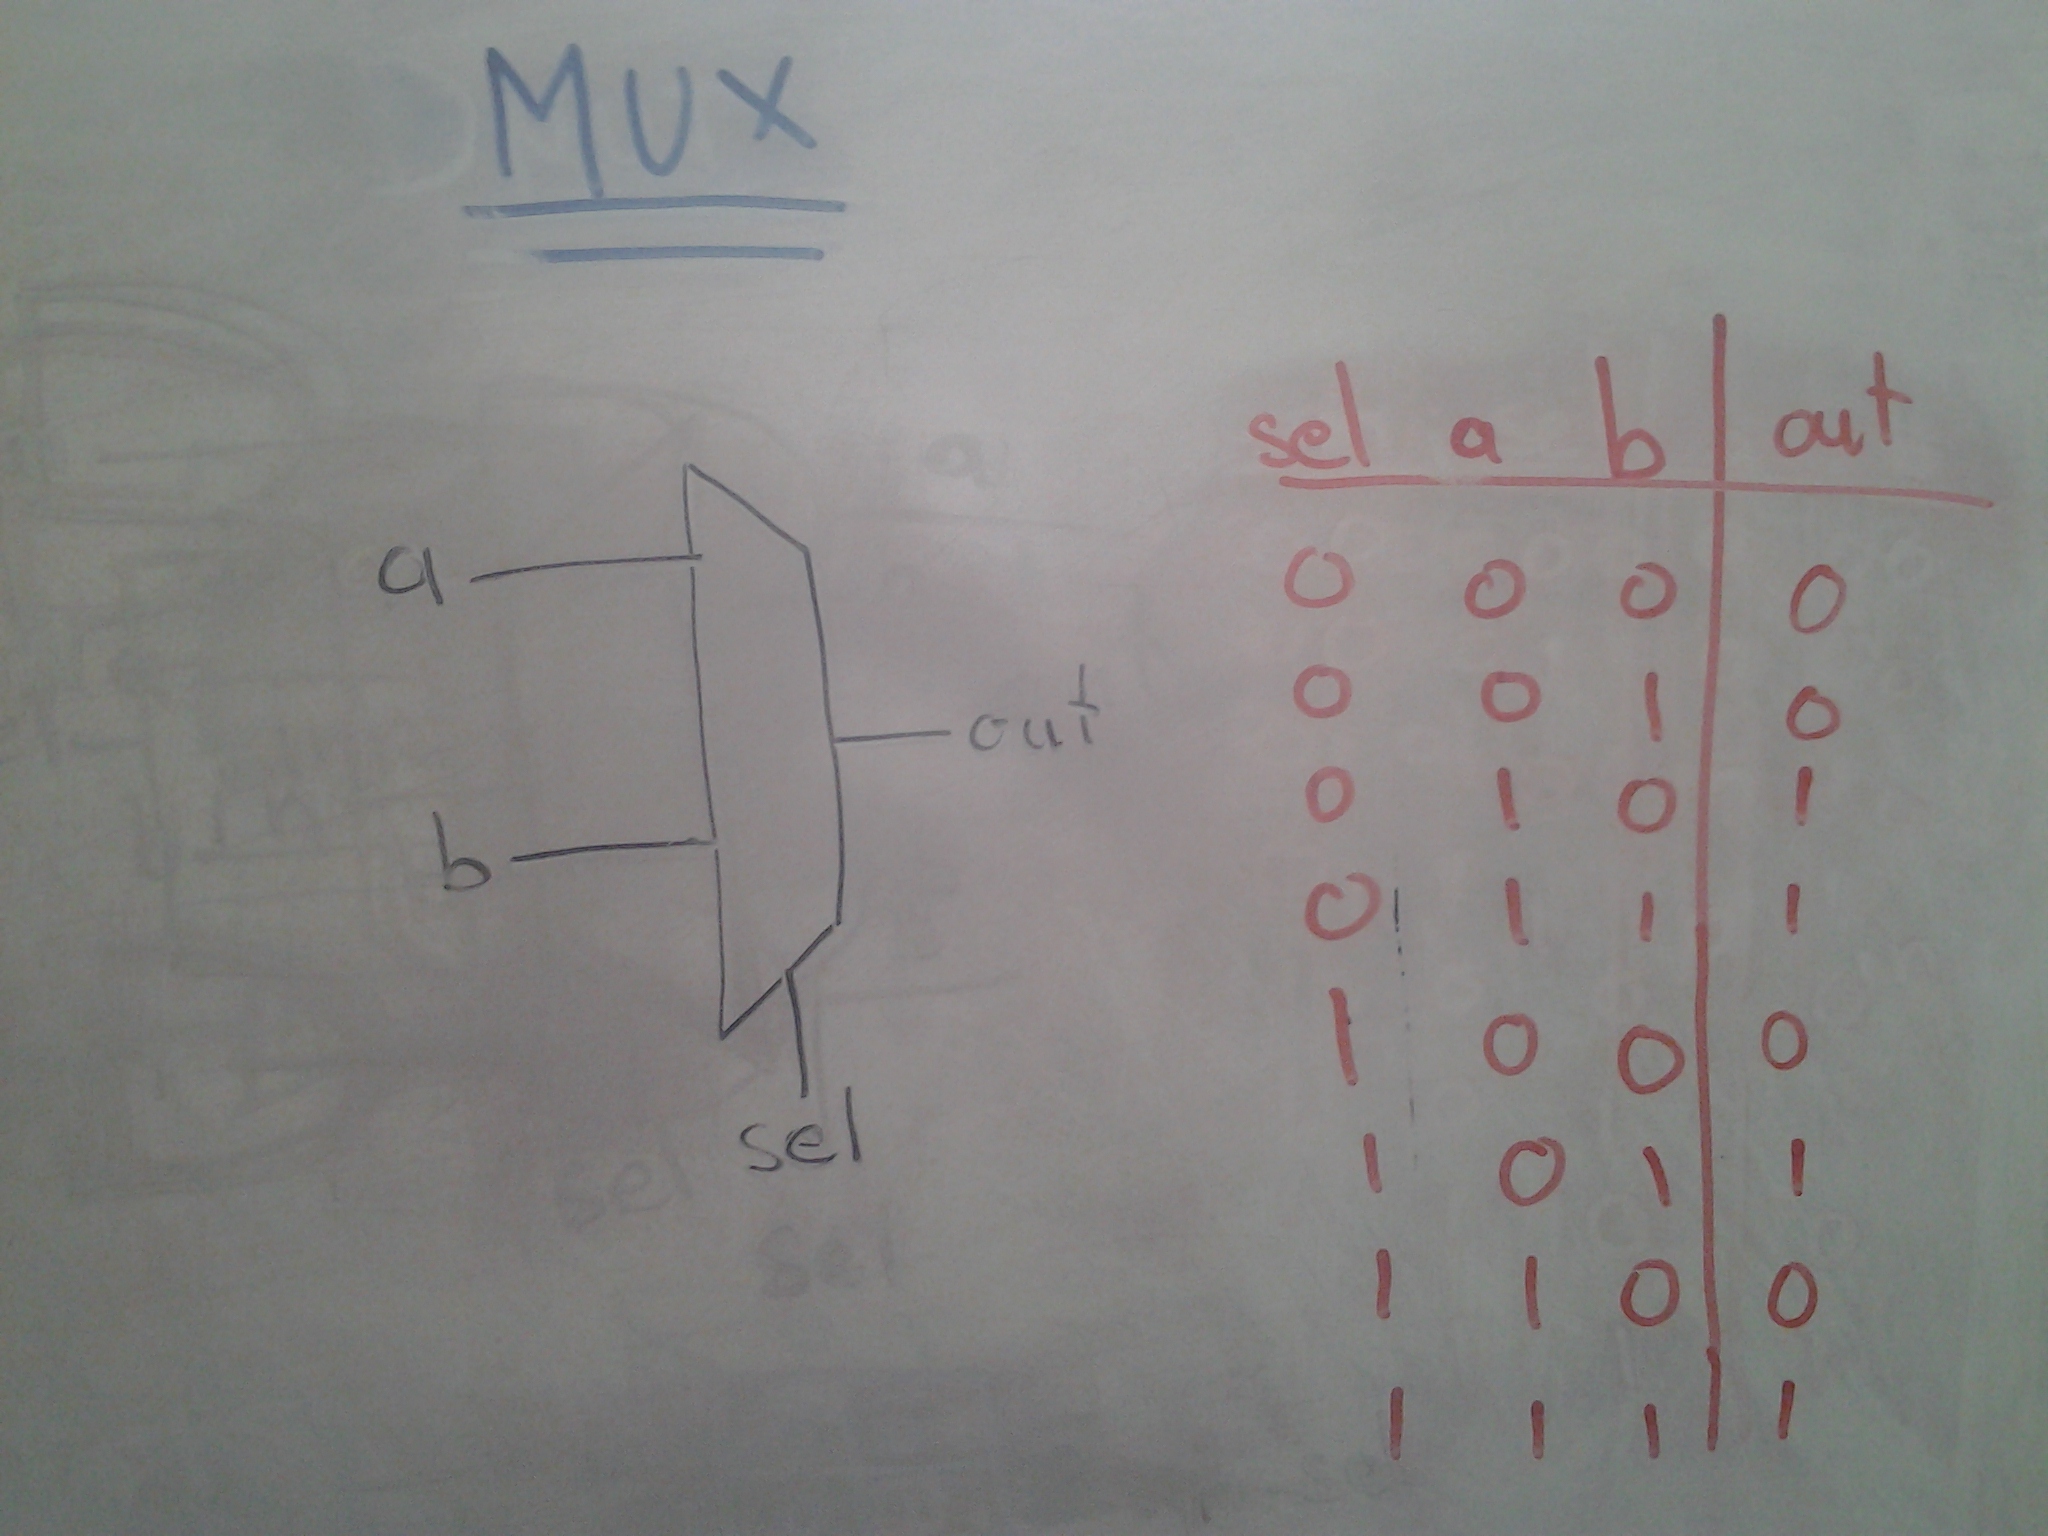 MUX
a
b
out
sel
sel a b out
0 0 0 0
0 0 1 0
0 1 0 1
0 1 1 1
1 0 0 0
1 0 1 1
1 1 0 0
1 1 1 1
a
sel
sel